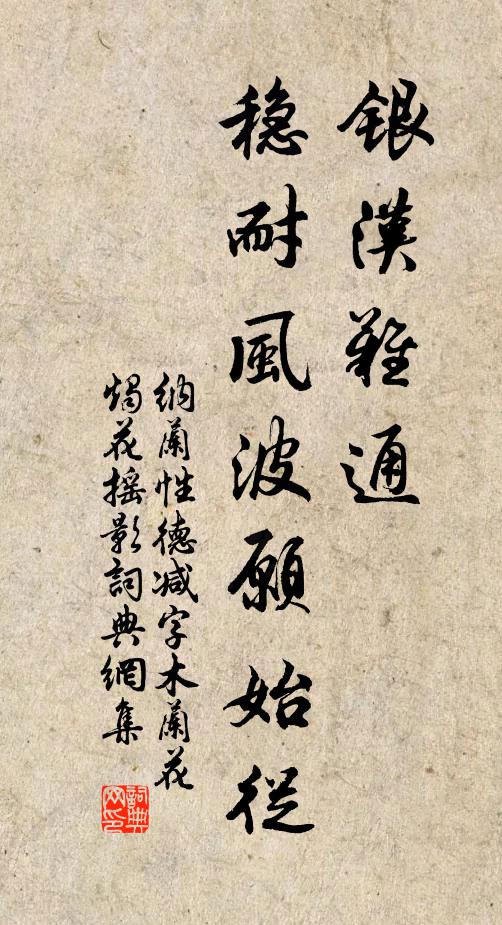 銀漢難通
穩耐風波願始從
納蘭性德减字木蘭花
燭花摇影詞典網集
詞典
网印